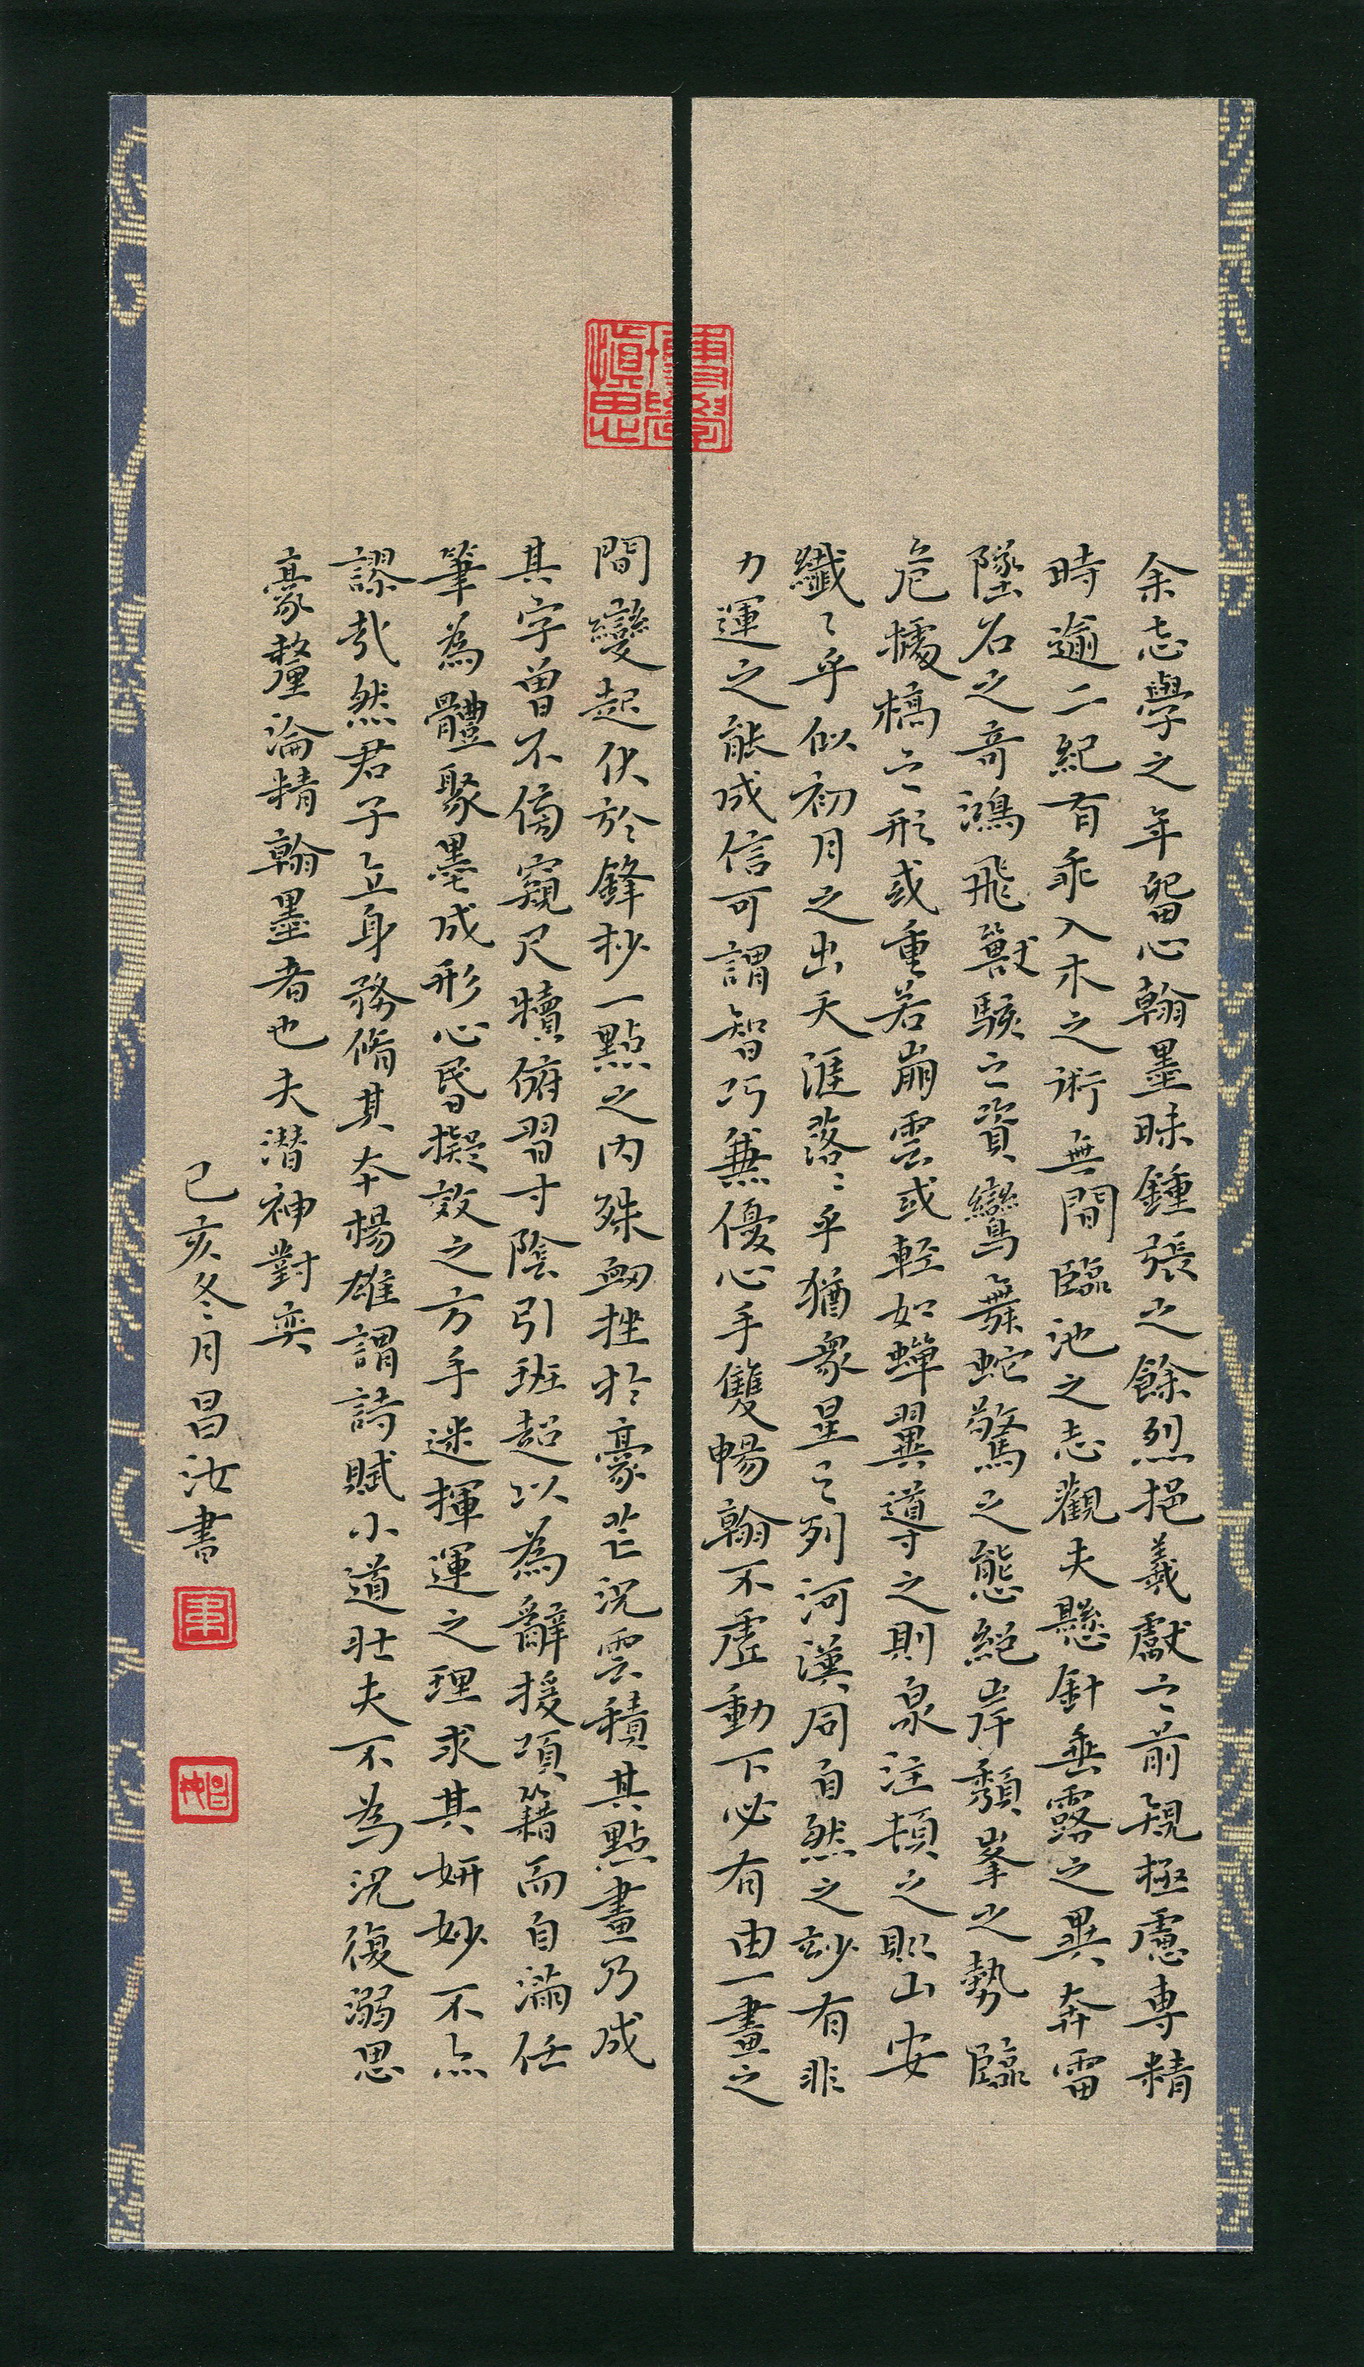 余志學之年留心翰墨味鍾張之餘烈挹羲獻之前規極慮專精
時逾二紀有乖入木之術無間臨池之志觀夫懸針垂露之異奔雷
墜石之奇鴻飛獸駭之資鸞舞蛇驚之態絕岸頹峯之勢臨
危據槁之形或重若崩雲或輕如蟬翼導之則泉注頓之則山安
纖々乎似初月之出天涯落々乎猶衆星之列河漢同自然之妙有非
力運之能成信可謂智巧兼優心手雙暢翰不虛動下必有由一畫之
間變起伏於鋒杪一點之內殊衄挫於豪芒況雲積其點畫乃成
其字曾不傍窺尺牘俯習寸陰引班超以為辭援項籍而自滿任
筆為體聚墨成形心昏擬效之方手迷揮運之理求其妍妙不亦
謬哉然君子立身務脩其本楊雄謂詩賦小道壯夫不為況復溺思
豪釐淪精翰墨者也夫潛神對奕
己亥冬月昌汝書
博學慎思